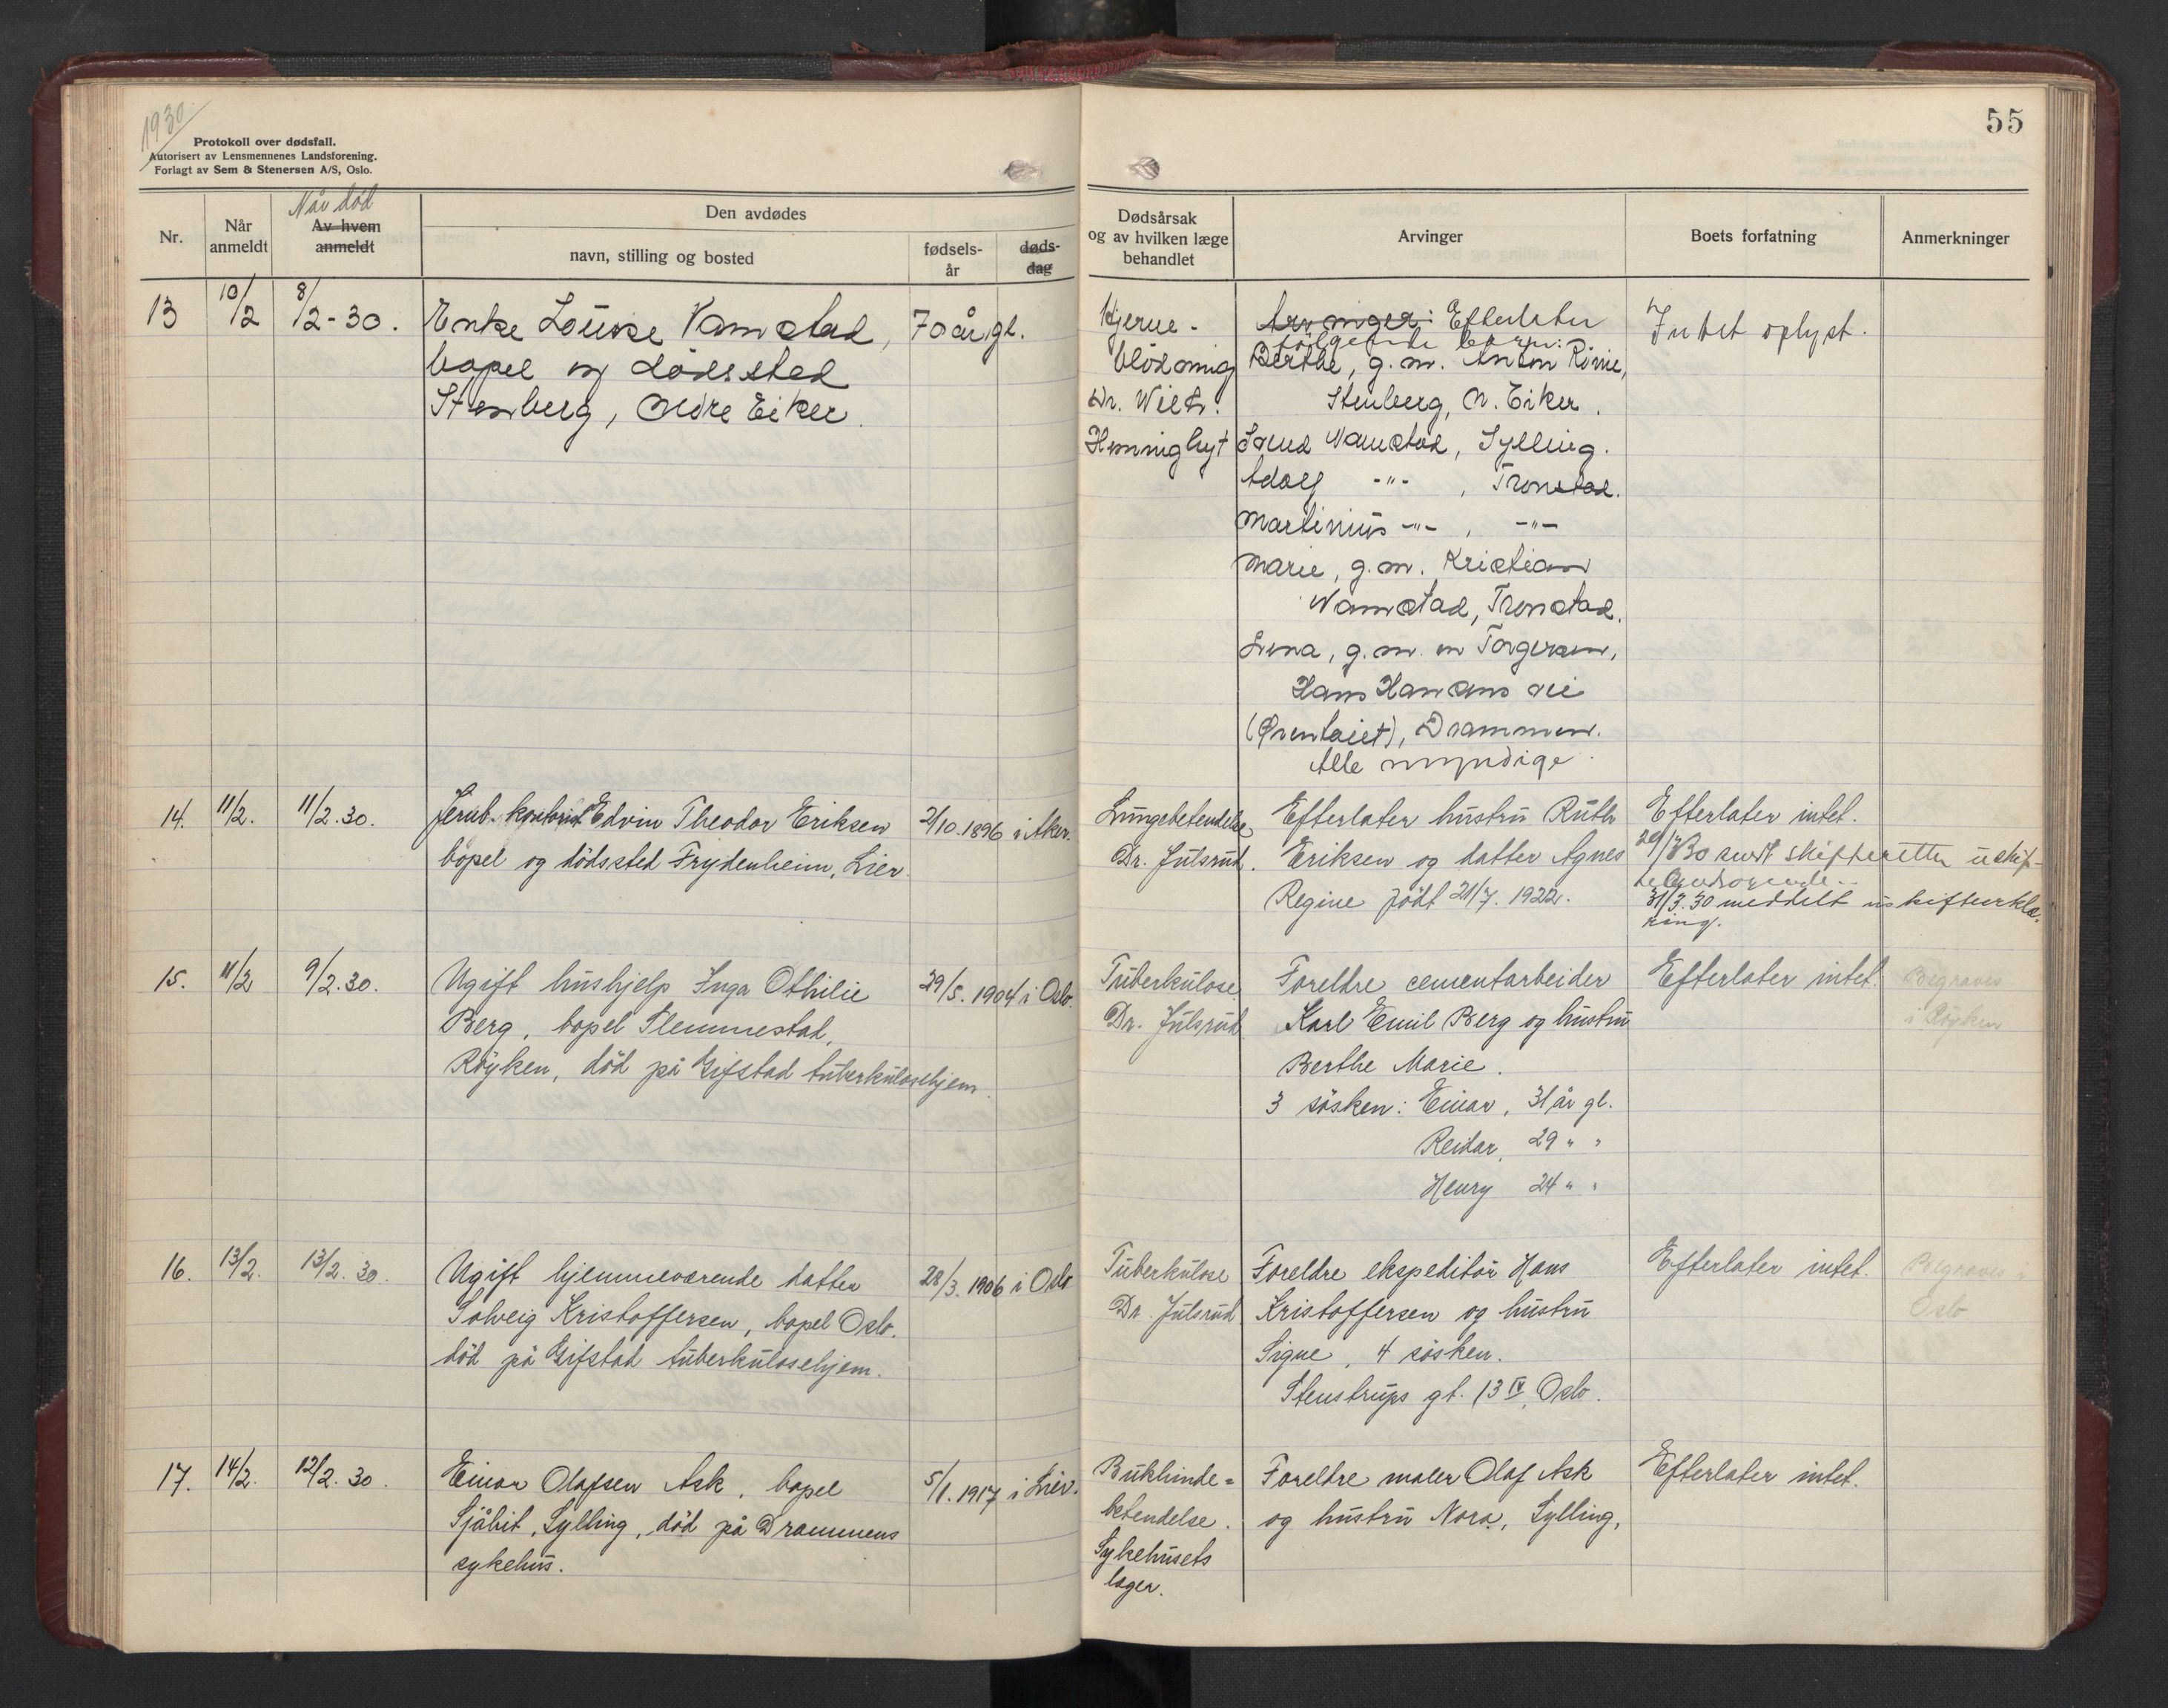 1930
55
Protokoll over dødsfall.
Autorisert av Lensmennenes Landsforening.
Forlagt av Sem & Stenersen A/S, Oslo.
Nr.
Når anmeldt
Når død
Av hvem anmeldt
Den avdødes
navn, stilling og bosted
fødsels-år
døds-dag
Dødsårsak og av hvilken læge behandlet
Arvinger
Boets forfatning
Anmerkninger
13 10/2 8/2-30.
Enke Louise Vamstad,
bopel og dødssted
Stenberg, Nedre Eiker.
70 år gl.
Hjerne-
blødning
Dr. Wilh.
Arvinger: Efterlater
følgende barn:
Berthe, g.m. Anton
Stenberg, N. Eiker.
Vamstad, Sylling.
Adolf -"- , Tronstad.
Martinius -"- , -"-
Marie, g.m. Kristian
Vamstad, Tronstad.
Lina, g.m. en Torgersen,
Hans Hansens vei
Drammen.
Alle myndige.
Intet oplyst.
14. 11/2. 11/2.30.
Jernb. kontorist Edvin Theodor Eriksen
bopel og dödssted Frydenheim, Lier.
2/10.1896 i Aker.
Lungebetendelse
Dr. Julsrud.
Efterlater hustru Ruth
Eriksen og datter Agnes
Regine födt 21/7. 1922.
Efterlater intet.
skifteretten
31/3.30 meddelt uskifteerklæ-
ring.
15. 11/2 9/2.30.
Ugift hushjelp Inga Othilie
Berg, bopel Slemmestad,
Röyken, död på Gifstad tuberkulosehjem.
29/5. 1904 i Oslo.
Tuberkulose.
Dr. Julsrud
Foreldre cementarbeider
Karl Emil Berg og hustru
Berthe Marie.
3 søsken: Einar, 31 år gl.
Reidar, 29 " "
Henry 24 " "
Efterlater intet.
Begraves
i Röyken
16. 13/2. 13/2.30.
Ugift hjemmeværende datter
Solveig Kristoffersen, bopel Oslo.
död på Gifstad tuberkulosehjem.
28/3. 1906 i Oslo
Tuberkulose
Dr. Julsrud
Foreldre ekspeditör Hans
Kristoffersen og hustru
Signe, 4 søsken.
Stenstrups gt. 13 IV, Oslo.
Efterlater intet.
Begraves i
Oslo
17. 14/2. 12/2.30.
Einar Olafsen Ask, bopel
Sylling, död på Drammens
sykehus.
5/1.1917 i Lier.
Bukhinde=
betendelse.
Sykehusets
læger.
Foreldre maler Olaf Ask
og hustru Nora, Sylling,
Efterlater intet.